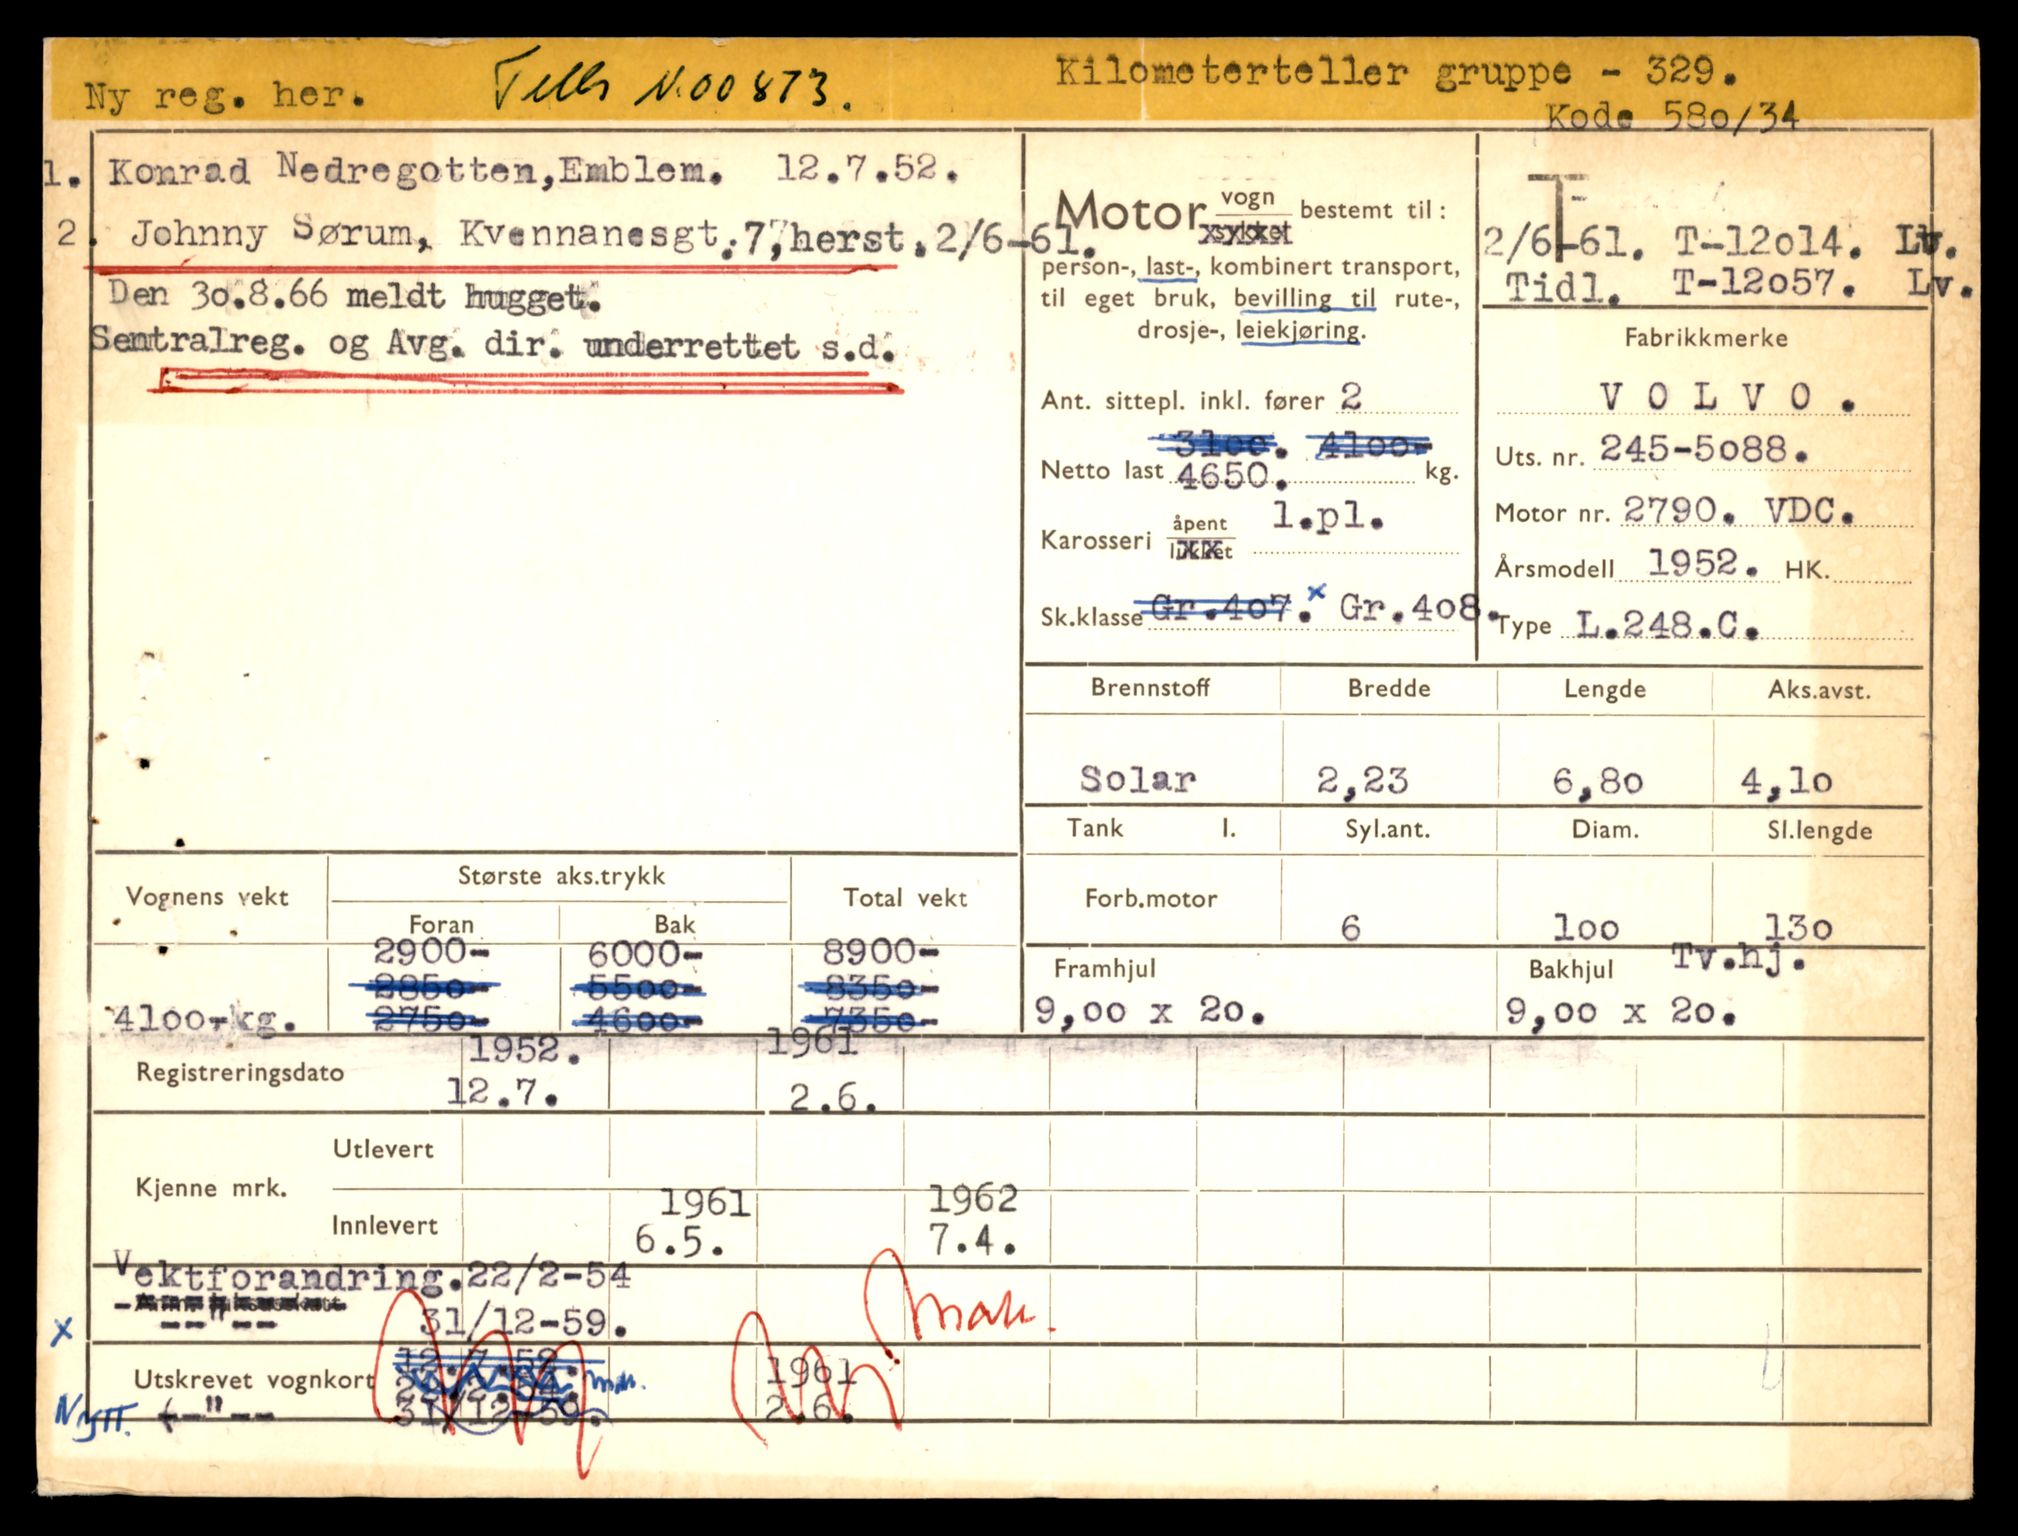 Ny reg. her.
Tells N.00873.
Kilometerteller gruppe - 329.
Kode 580/34
1. Konrad Nedregotten, Emblem. 12.7.52.
2. Johnny Sørum, Kvennanesgt. 7, herst. 2/6-61.
Den 30.8.66 meldt hugget.
Sentralreg. og Avg. dir. underrettet s.d.
Motor vogn
sykkel
bestemt til:
person-, last-, kombinert transport,
til eget bruk, bevilling til rute-,
drosje-, leiekjøring.
Ant. sittepl. inkl. fører 2
3100. 4100-
Netto last 4650. kg.
Karosseri åpent
lukket
l.pl.
Sk.klasse Gr.407. x Gr.408.
T
2/6-61. T-12014. Lv.
Tidl. T-12057. Lv.
Fabrikkmerke
VOLVO.
Uts. nr. 245-5088.
Motor nr. 2790. VDC.
Årsmodell 1952. HK.
Type L.248.C.
Brennstoff Bredde Lengde Aks.avst.
Solar 2,23 6,80 4,10
Tank l. Syl.ant. Diam. Sl.lengde
Forb.motor 6 100 130
Framhjul Bakhjul Tv.hj.
9,00 x 20. 9,00 x 20.
Vognens vekt Største aks.trykk Total vekt
Foran Bak
2900- 6000- 8900-
2850- 5500- 8350-
4100-kg. 2750- 4600- 7350-
Registreringsdato 1952. 1961
12.7. 2.6.
Kjenne mrk. Utlevert
Innlevert 1961 1962
6.5. 7.4.
Vektforandring. 22/2-54
x --"-- 31/12-59.
mak.
12.7.52.
Utskrevet vognkort 1961
Nytt. --"-- 31/12-59. 2.6.